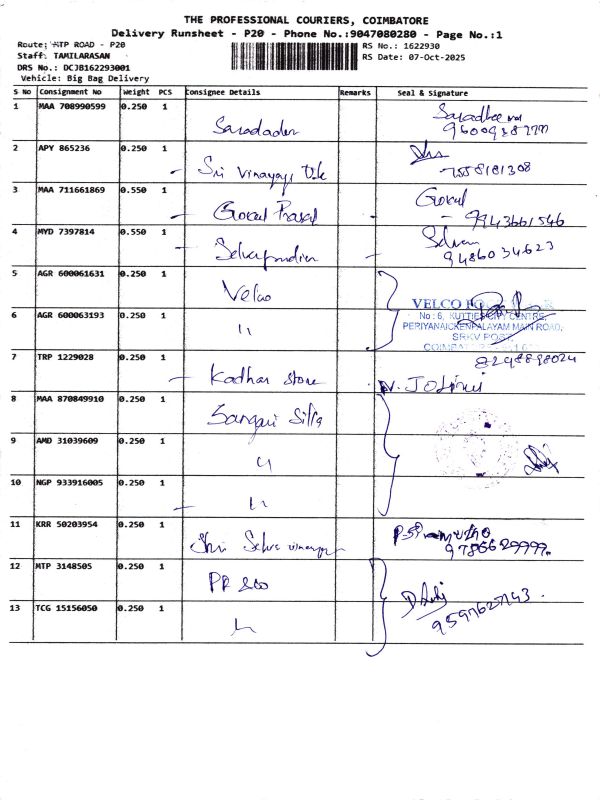 THE PROFESSIONAL COURIERS, COIMBATORE
Delivery Runsheet - P20 - Phone No.:9047080280 - Page No.:1
Route: MTP ROAD - P20
RS No.: 1622930
Staff: TAMILARASAN
RS Date: 07-Oct-2025
DRS No.: DCJB162293001
Vehicle: Big Bag Delivery
S No Consignment No Weight PCS Consignee Details Remarks Seal & Signature
1 MAA 708990599 0.250 1
2 APY 865236 0.250 1 Sri Vinayaga
7558181308
3 MAA 711661869 0.550 1 Gokul Prasad Gokul
9943661546
4 MYD 7397814 0.550 1 Selvapandian Selvam
9486034623
5 AGR 600061631 0.250 1 Velco
VELCO
No : 6, KUTTIES CITY CENTRE,
PERIYANAICKENPALAYAM MAIN ROAD,
SRKV POST,
6 AGR 600063193 0.250 1 "
7 TRP 1229028 0.250 1 Kadhar Store
8298898024
8 MAA 870849910 0.250 1 Sangavi
9 AMD 31039609 0.250 1 "
10 NGP 933916005 0.250 1 "
11 KRR 50203954 0.250 1 Shri Selva Vinayaga
9786629999
12 MTP 3148505 0.250 1
13 TCG 15156050 0.250 1 "
9597627143